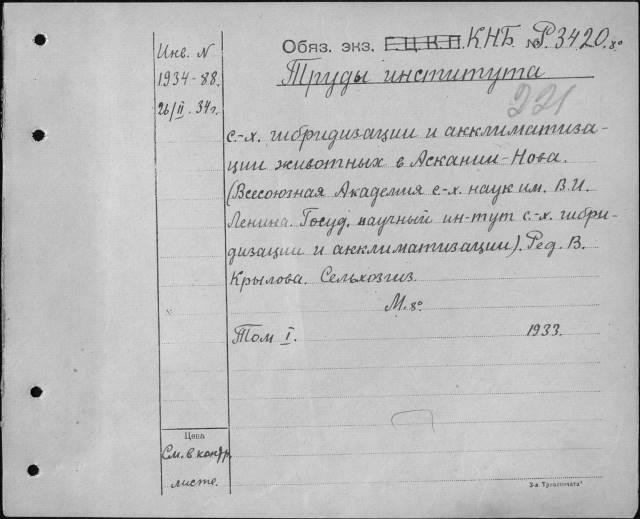 Инв. N
1934-88.
26/II. 34г.
Обяз. экз. Г.Ц.К.П. КНБ. № Р.3420.8°
Труды института
221
с.-х. гибридизации и акклиматиза-
ции животных в Аскании-Нова.
(Всесоюзная Академия с-х. наук им. В.И.
Ленина. Госуд. научный ин-тут с.-х. гибри-
дизации и акклиматизации). Ред. В.
Крылова. Сельхозгиз.
М. 8°
Том I. 1933.
Цена
См. в контр.
листе.